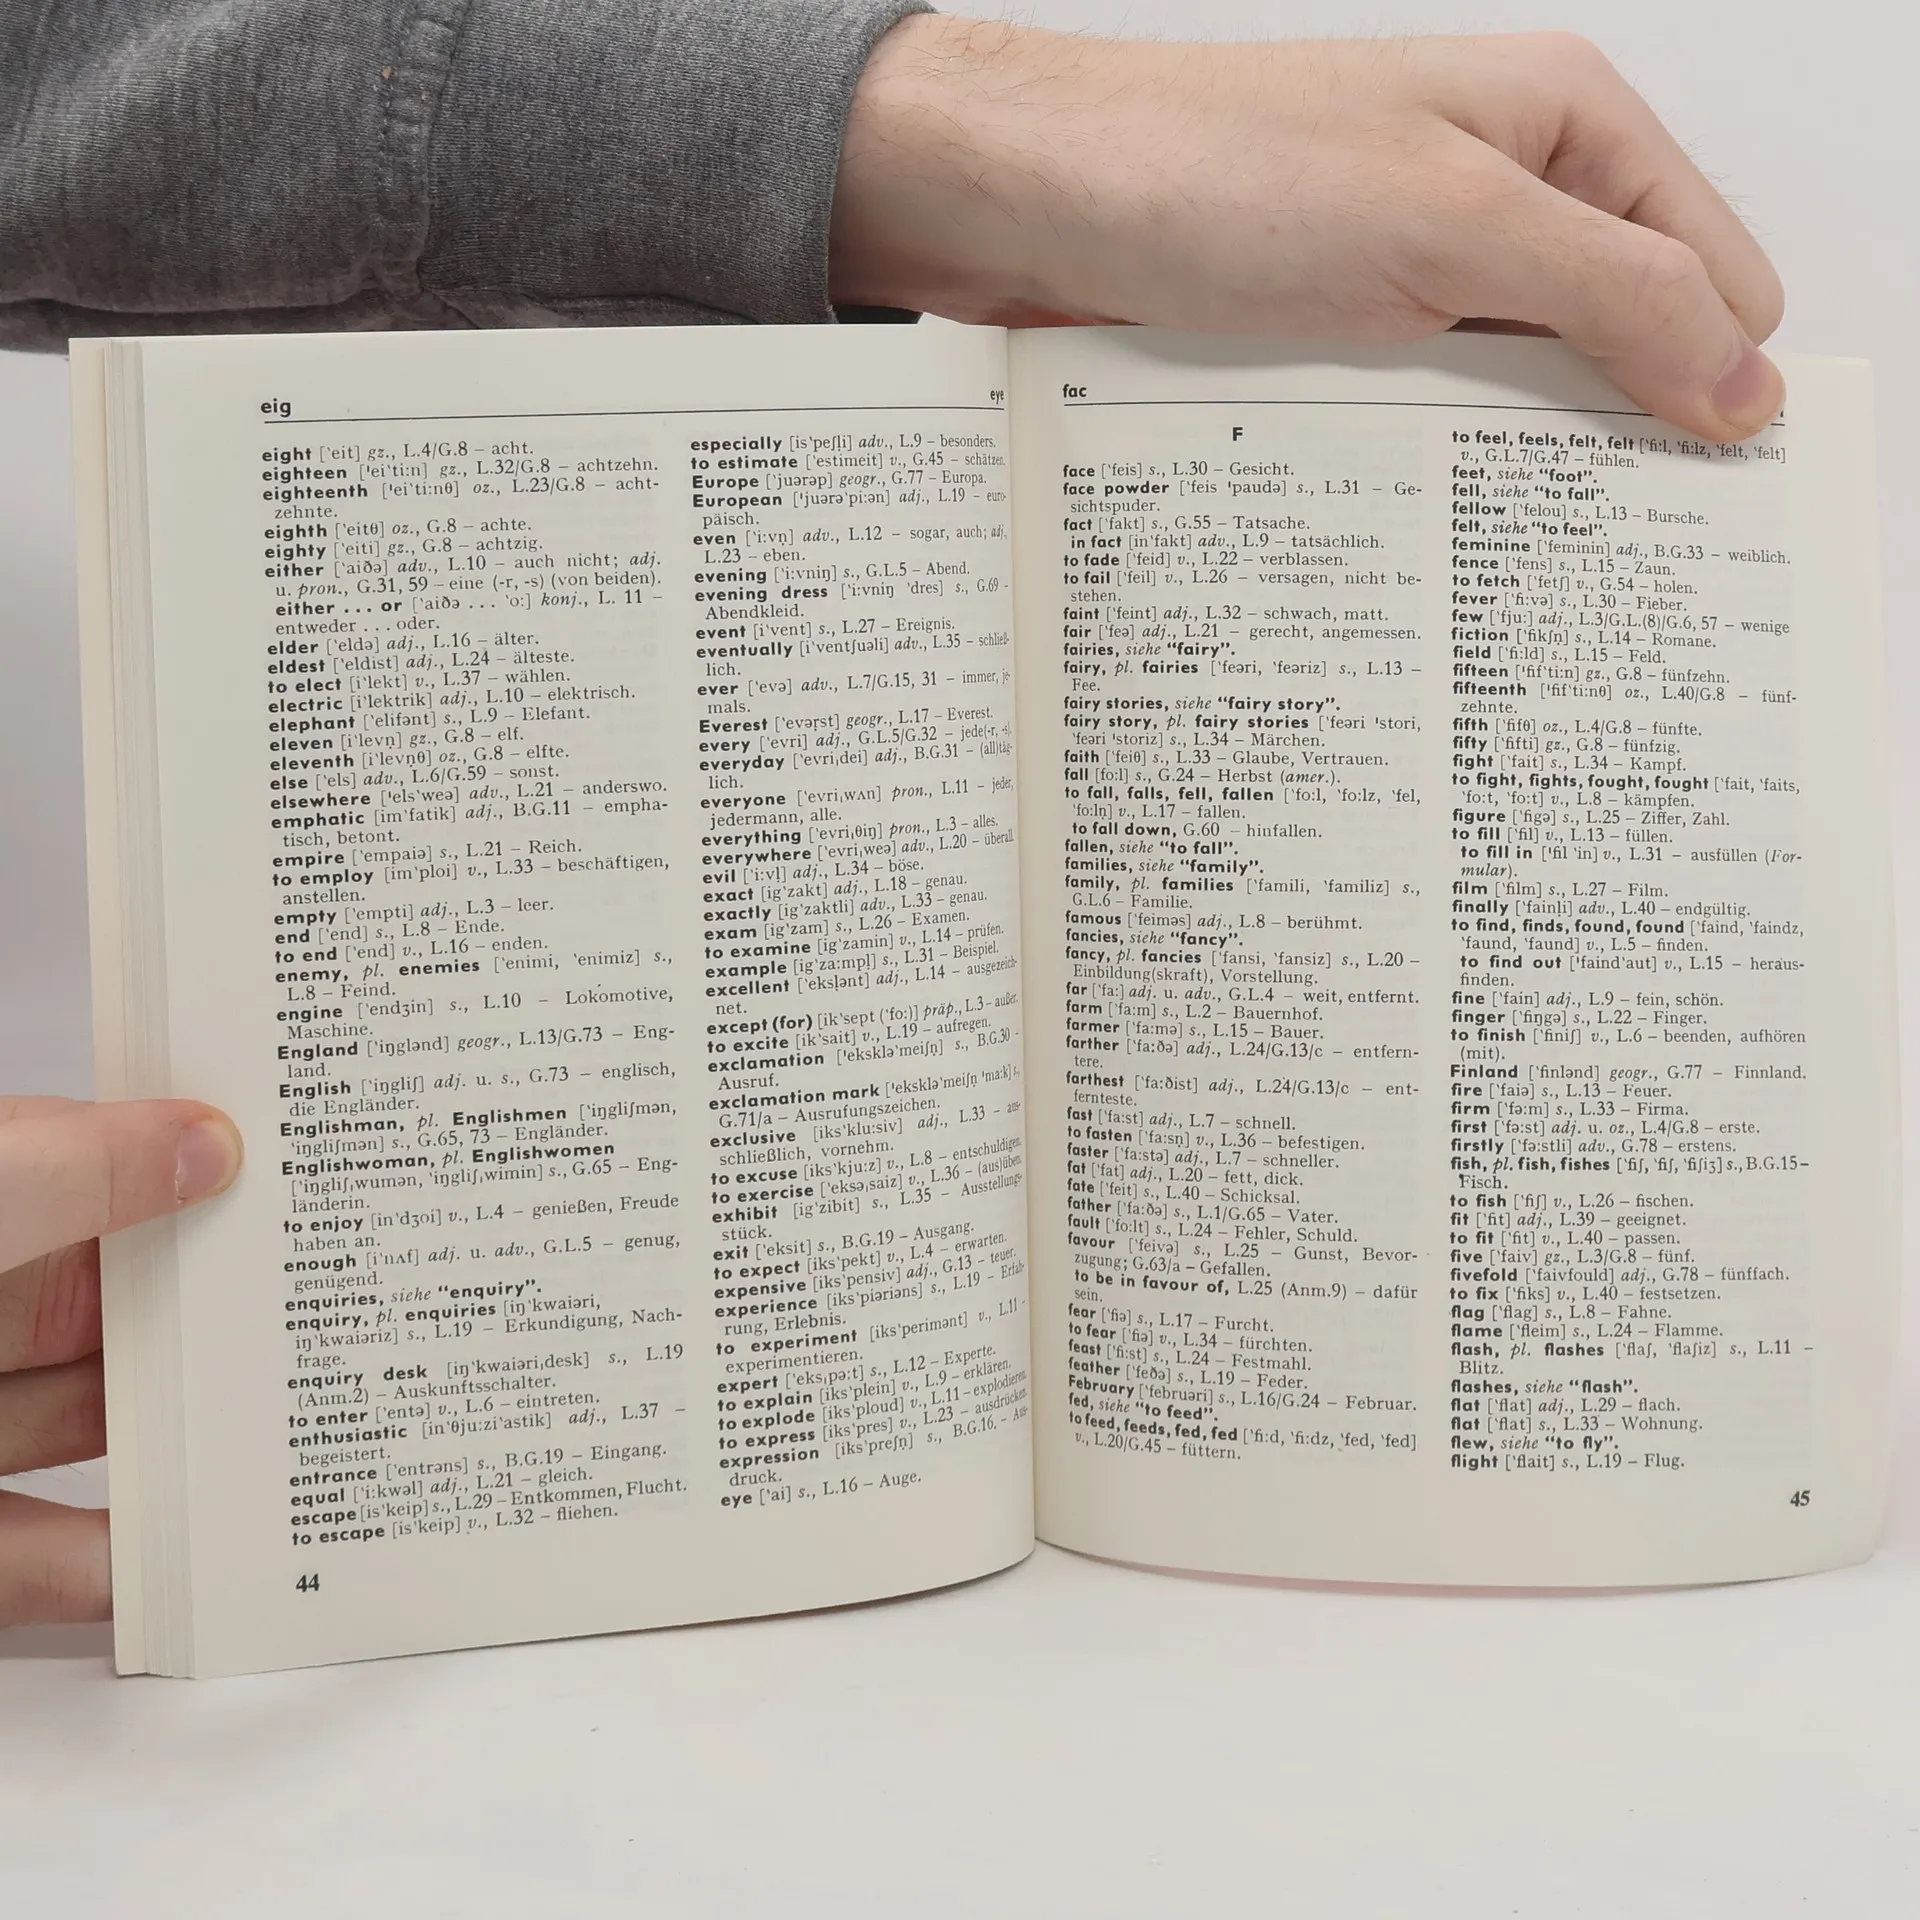 eig
eye
eight ['eit] gz., L.4/G.8 – acht.
eighteen ['ei'ti:n] gz., L.32/G.8 – achtzehn.
eighteenth ['ei'ti:nθ] oz., L.23/G.8 – acht-
zehnte.
eighth ['eitθ] oz., G.8 – achte.
eighty ['eiti] gz., G.8 – achtzig.
either ['aiðə] adv., L.10 – auch nicht; adj.
u. pron., G.31, 59 – eine (-r, -s) (von beiden).
either ... or ['aiðə ... 'o:] konj., L. 11 –
entweder ... oder.
elder ['eldə] adj., L.16 – älter.
eldest ['eldist] adj., L.24 – älteste.
to elect [i'lekt] v., L.37 – wählen.
electric [i'lektrik] adj., L.10 – elektrisch.
elephant ['elifənt] s., L.9 – Elefant.
eleven [i'levṇ] gz., G.8 – elf.
eleventh [i'levṇθ] oz., G.8 – elfte.
else ['els] adv., L.6/G.59 – sonst.
elsewhere ['els'weə] adv., L.21 – anderswo.
emphatic [im'fatik] adj., B.G.11 – empha-
tisch, betont.
empire ['empaiə] s., L.21 – Reich.
to employ [im'ploi] v., L.33 – beschäftigen,
anstellen.
empty ['empti] adj., L.3 – leer.
end ['end] s., L.8 – Ende.
to end ['end] v., L.16 – enden.
enemy, pl. enemies ['enimi, 'enimiz] s.,
L.8 – Feind.
engine ['endʒin] s., L.10 – Lokomotive,
Maschine.
England ['iŋglənd] geogr., L.13/G.73 – Eng-
land.
English ['iŋgliʃ] adj. u. s., G.73 – englisch,
die Engländer.
Englishman, pl. Englishmen ['iŋgliʃmən,
'iŋgliʃmən] s., G.65, 73 – Engländer.
Englishwoman, pl. Englishwomen
['iŋgliʃˌwumən, 'iŋgliʃˌwimin] s., G.65 – Eng-
länderin.
to enjoy [in'dʒoi] v., L.4 – genießen, Freude
haben an.
enough [i'nʌf] adj. u. adv., G.L.5 – genug,
genügend.
enquiries, siehe “enquiry”.
enquiry, pl. enquiries [iŋ'kwaiəri,
iŋ'kwaiəriz] s., L.19 – Erkundigung, Nach-
frage.
enquiry desk [iŋ'kwaiəriˌdesk] s., L.19
(Anm.2) – Auskunftsschalter.
to enter ['entə] v., L.6 – eintreten.
enthusiastic [in'θju:zi'astik] adj., L.37 –
begeistert.
entrance ['entrəns] s., B.G.19 – Eingang.
equal ['i:kwəl] adj., L.21 – gleich.
escape [is'keip] s., L.29 – Entkommen, Flucht.
to escape [is'keip] v., L.32 – fliehen.
44
especially [is'peʃḷi] adv., L.9 – besonders.
to estimate ['estimeit] v., G.45 – schätzen.
Europe ['juərəp] geogr., G.77 – Europa.
European ['juərə'pi:ən] adj., L.19 – euro-
päisch.
even ['i:vṇ] adv., L.12 – sogar, auch; adj.,
L.23 – eben.
evening ['i:vniŋ] s., G.L.5 – Abend.
evening dress ['i:vniŋ 'dres] s., G.69 –
Abendkleid.
event [i'vent] s., L.27 – Ereignis.
eventually [i'ventʃuəli] adv., L.35 – schließ-
lich.
ever ['evə] adv., L.7/G.15, 31 – immer, je-
mals.
Everest ['evərst] geogr., L.17 – Everest.
every ['evri] adj., G.L.5/G.32 – jede(-r, -s).
everyday ['evriˌdei] adj., B.G.31 – (all)täg-
lich.
everyone ['evriˌwʌn] pron., L.11 – jeder,
jedermann, alle.
everything ['evriˌθiŋ] pron., L.3 – alles.
everywhere ['evriˌweə] adv., L.20 – überall.
evil ['i:vḷ] adj., L.34 – böse.
exact [ig'zakt] adj., L.18 – genau.
exactly [ig'zaktli] adv., L.33 – genau.
exam [ig'zam] s., L.26 – Examen.
to examine [ig'zamin] v., L.14 – prüfen.
example [ig'za:mpḷ] s., L.31 – Beispiel.
excellent ['eksḷənt] adj., L.14 – ausgezeich-
net.
except (for) [ik'sept ('fo:)] präp., L.3 – außer.
to excite [ik'sait] v., L.19 – aufregen.
exclamation ['eksklə'meiʃṇ] s., B.G.30 –
Ausruf.
exclamation mark ['eksklə'meiʃṇ 'ma:k] s.,
G.71/a – Ausrufungszeichen.
exclusive [iks'klu:siv] adj., L.33 – aus-
schließlich, vornehm.
to excuse [iks'kju:z] v., L.8 – entschuldigen.
to exercise ['eksəˌsaiz] v., L.36 – (aus)üben.
exhibit [ig'zibit] s., L.35 – Ausstellungs-
stück.
exit ['eksit] s., B.G.19 – Ausgang.
to expect [iks'pekt] v., L.4 – erwarten.
expensive [iks'pensiv] adj., G.13 – teuer.
experience [iks'piəriəns] s., L.19 – Erfah-
rung, Erlebnis.
to experiment [iks'perimənt] v., L.11 –
experimentieren.
expert ['eksˌpə:t] s., L.12 – Experte.
to explain [iks'plein] v., L.9 – erklären.
to explode [iks'ploud] v., L.11 – explodieren.
to express [iks'pres] v., L.23 – ausdrücken.
expression [iks'preʃṇ] s., B.G.16. – Aus-
druck.
eye ['ai] s., L.16 – Auge.
fac
F
face ['feis] s., L.30 – Gesicht.
face powder ['feis 'paudə] s., L.31 – Ge-
sichtspuder.
fact ['fakt] s., G.55 – Tatsache.
in fact [in'fakt] adv., L.9 – tatsächlich.
to fade ['feid] v., L.22 – verblassen.
to fail ['feil] v., L.26 – versagen, nicht be-
stehen.
faint ['feint] adj., L.32 – schwach, matt.
fair ['feə] adj., L.21 – gerecht, angemessen.
fairies, siehe “fairy”.
fairy, pl. fairies ['feəri, 'feəriz] s., L.13 –
Fee.
fairy stories, siehe “fairy story”.
fairy story, pl. fairy stories ['feəri 'stori,
'feəri 'storiz] s., L.34 – Märchen.
faith ['feiθ] s., L.33 – Glaube, Vertrauen.
fall [fo:l] s., G.24 – Herbst (amer.).
to fall, falls, fell, fallen ['fo:l, 'fo:lz, 'fel,
'fo:lṇ] v., L.17 – fallen.
to fall down, G.60 – hinfallen.
fallen, siehe “to fall”.
families, siehe “family”.
family, pl. families ['famili, 'familiz] s.,
G.L.6 – Familie.
famous ['feiməs] adj., L.8 – berühmt.
fancies, siehe “fancy”.
fancy, pl. fancies ['fansi, 'fansiz] s., L.20 –
Einbildung(skraft), Vorstellung.
far ['fa:] adj. u. adv., G.L.4 – weit, entfernt.
farm ['fa:m] s., L.2 – Bauernhof.
farmer ['fa:mə] s., L.15 – Bauer.
farther ['fa:ðə] adj., L.24/G.13/c – entfern-
tere.
farthest ['fa:ðist] adj., L.24/G.13/c – ent-
fernteste.
fast ['fa:st] adj., L.7 – schnell.
to fasten ['fa:sṇ] v., L.36 – befestigen.
faster ['fa:stə] adj., L.7 – schneller.
fat ['fat] adj., L.20 – fett, dick.
fate ['feit] s., L.40 – Schicksal.
father ['fa:ðə] s., L.1/G.65 – Vater.
fault ['fo:lt] s., L.24 – Fehler, Schuld.
favour ['feivə] s., L.25 – Gunst, Bevor-
zugung; G.63/a – Gefallen.
to be in favour of, L.25 (Anm.9) – dafür
sein.
fear ['fiə] s., L.17 – Furcht.
to fear ['fiə] v., L.34 – fürchten.
feast ['fi:st] s., L.24 – Festmahl.
feather ['feðə] s., L.19 – Feder.
February ['februəri] s., L.16/G.24 – Februar.
fed, siehe “to feed”.
to feed, feeds, fed, fed ['fi:d, 'fi:dz, 'fed, 'fed]
v., L.20/G.45 – füttern.
to feel, feels, felt, felt ['fi:l, 'fi:lz, 'felt, 'felt]
v., G.L.7/G.47 – fühlen.
feet, siehe “foot”.
fell, siehe “to fall”.
fellow ['felou] s., L.13 – Bursche.
felt, siehe “to feel”.
feminine ['feminin] adj., B.G.33 – weiblich.
fence ['fens] s., L.15 – Zaun.
to fetch ['fetʃ] v., G.54 – holen.
fever ['fi:və] s., L.30 – Fieber.
few ['fju:] adj., L.3/G.L.(8)/G.6, 57 – wenige
fiction ['fikʃṇ] s., L.14 – Romane.
field ['fi:ld] s., L.15 – Feld.
fifteen ['fif'ti:n] gz., G.8 – fünfzehn.
fifteenth ['fif'ti:nθ] oz., L.40/G.8 – fünf-
zehnte.
fifth ['fifθ] oz., L.4/G.8 – fünfte.
fifty ['fifti] gz., G.8 – fünfzig.
fight ['fait] s., L.34 – Kampf.
to fight, fights, fought, fought ['fait, 'faits,
'fo:t, 'fo:t] v., L.8 – kämpfen.
figure ['figə] s., L.25 – Ziffer, Zahl.
to fill ['fil] v., L.13 – füllen.
to fill in ['fil 'in] v., L.31 – ausfüllen (For-
mular).
film ['film] s., L.27 – Film.
finally ['fainḷi] adv., L.40 – endgültig.
to find, finds, found, found ['faind, 'faindz,
'faund, 'faund] v., L.5 – finden.
to find out ['faind'aut] v., L.15 – heraus-
finden.
fine ['fain] adj., L.9 – fein, schön.
finger ['fiŋgə] s., L.22 – Finger.
to finish ['finiʃ] v., L.6 – beenden, aufhören
(mit).
Finland ['finlənd] geogr., G.77 – Finnland.
fire ['faiə] s., L.13 – Feuer.
firm ['fə:m] s., L.33 – Firma.
first ['fə:st] adj. u. oz., L.4/G.8 – erste.
firstly ['fə:stli] adv., G.78 – erstens.
fish, pl. fish, fishes ['fiʃ, 'fiʃ, 'fiʃiʒ] s., B.G.15 –
Fisch.
to fish ['fiʃ] v., L.26 – fischen.
fit ['fit] adj., L.39 – geeignet.
to fit ['fit] v., L.40 – passen.
five ['faiv] gz., L.3/G.8 – fünf.
fivefold ['faivfould] adj., G.78 – fünffach.
to fix ['fiks] v., L.40 – festsetzen.
flag ['flag] s., L.8 – Fahne.
flame ['fleim] s., L.24 – Flamme.
flash, pl. flashes ['flaʃ, 'flaʃiz] s., L.11 –
Blitz.
flashes, siehe “flash”.
flat ['flat] adj., L.29 – flach.
flat ['flat] s., L.33 – Wohnung.
flew, siehe “to fly”.
flight ['flait] s., L.19 – Flug.
45